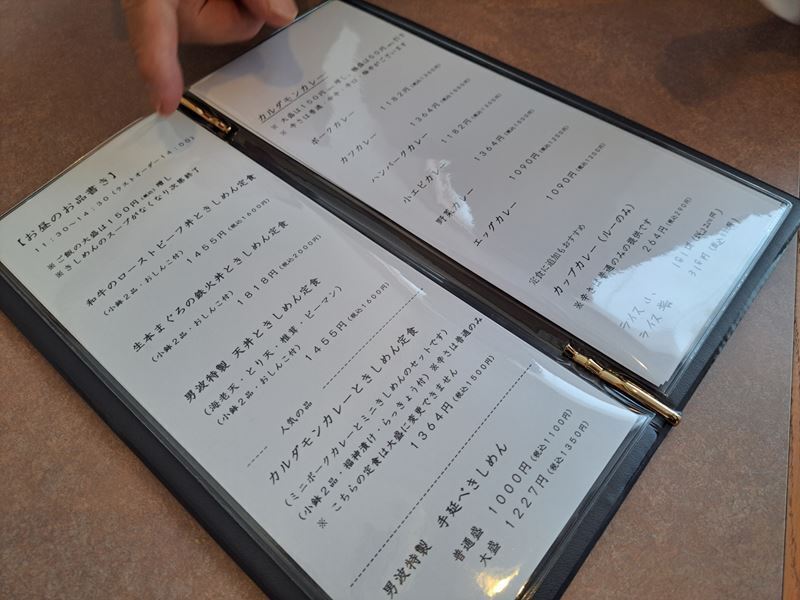 【お昼のお品書き】
11:30~14:30(ラストオーダー14:00)
※ご飯の大盛は150円(税込)増し
※きしめんのスープがなくなり次第終了
和牛のローストビーフ丼ときしめん定食
(小鉢2品・おしんこ付) 1455円(税込1600円)
生本まぐろの鉄火丼ときしめん定食
(小鉢2品・おしんこ付) 1818円(税込2000円)
男波特製 天丼ときしめん定食
(海老天・とり天・椎茸・ピーマン)
(小鉢2品・おしんこ付) 1455円(税込1600円)
人気の品
カルダモンカレーときしめん定食
(ミニポークカレーとミニきしめんのセットです)
(小鉢2品・福神漬け・らっきょう付)※辛さは普通のみ
※ こちらの定食は大盛に変更できません
1364円(税込1500円)
男波特製 手延べきしめん
普通盛 1000円(税込1100円)
大盛 1227円(税込1350円)
カルダモンカレー
※ 大盛は150円増し、
※ 辛さは普通・中辛・辛口・
ポークカレー 1182円(税込1300円)
カツカレー 1364円(税込1500円)
ハンバーグカレー 1182円(税込1300円)
小エビカレー 1364円(税込1500円)
野菜カレー 1090円(税込1200円)
エッグカレー 1090円(税込1200円)
定食に追加もおすすめ
カップカレー(ルーのみ) 264円(税込290円)
※辛さは普通のみの提供です
ライス小 181円(税込200円)
ライス 318円